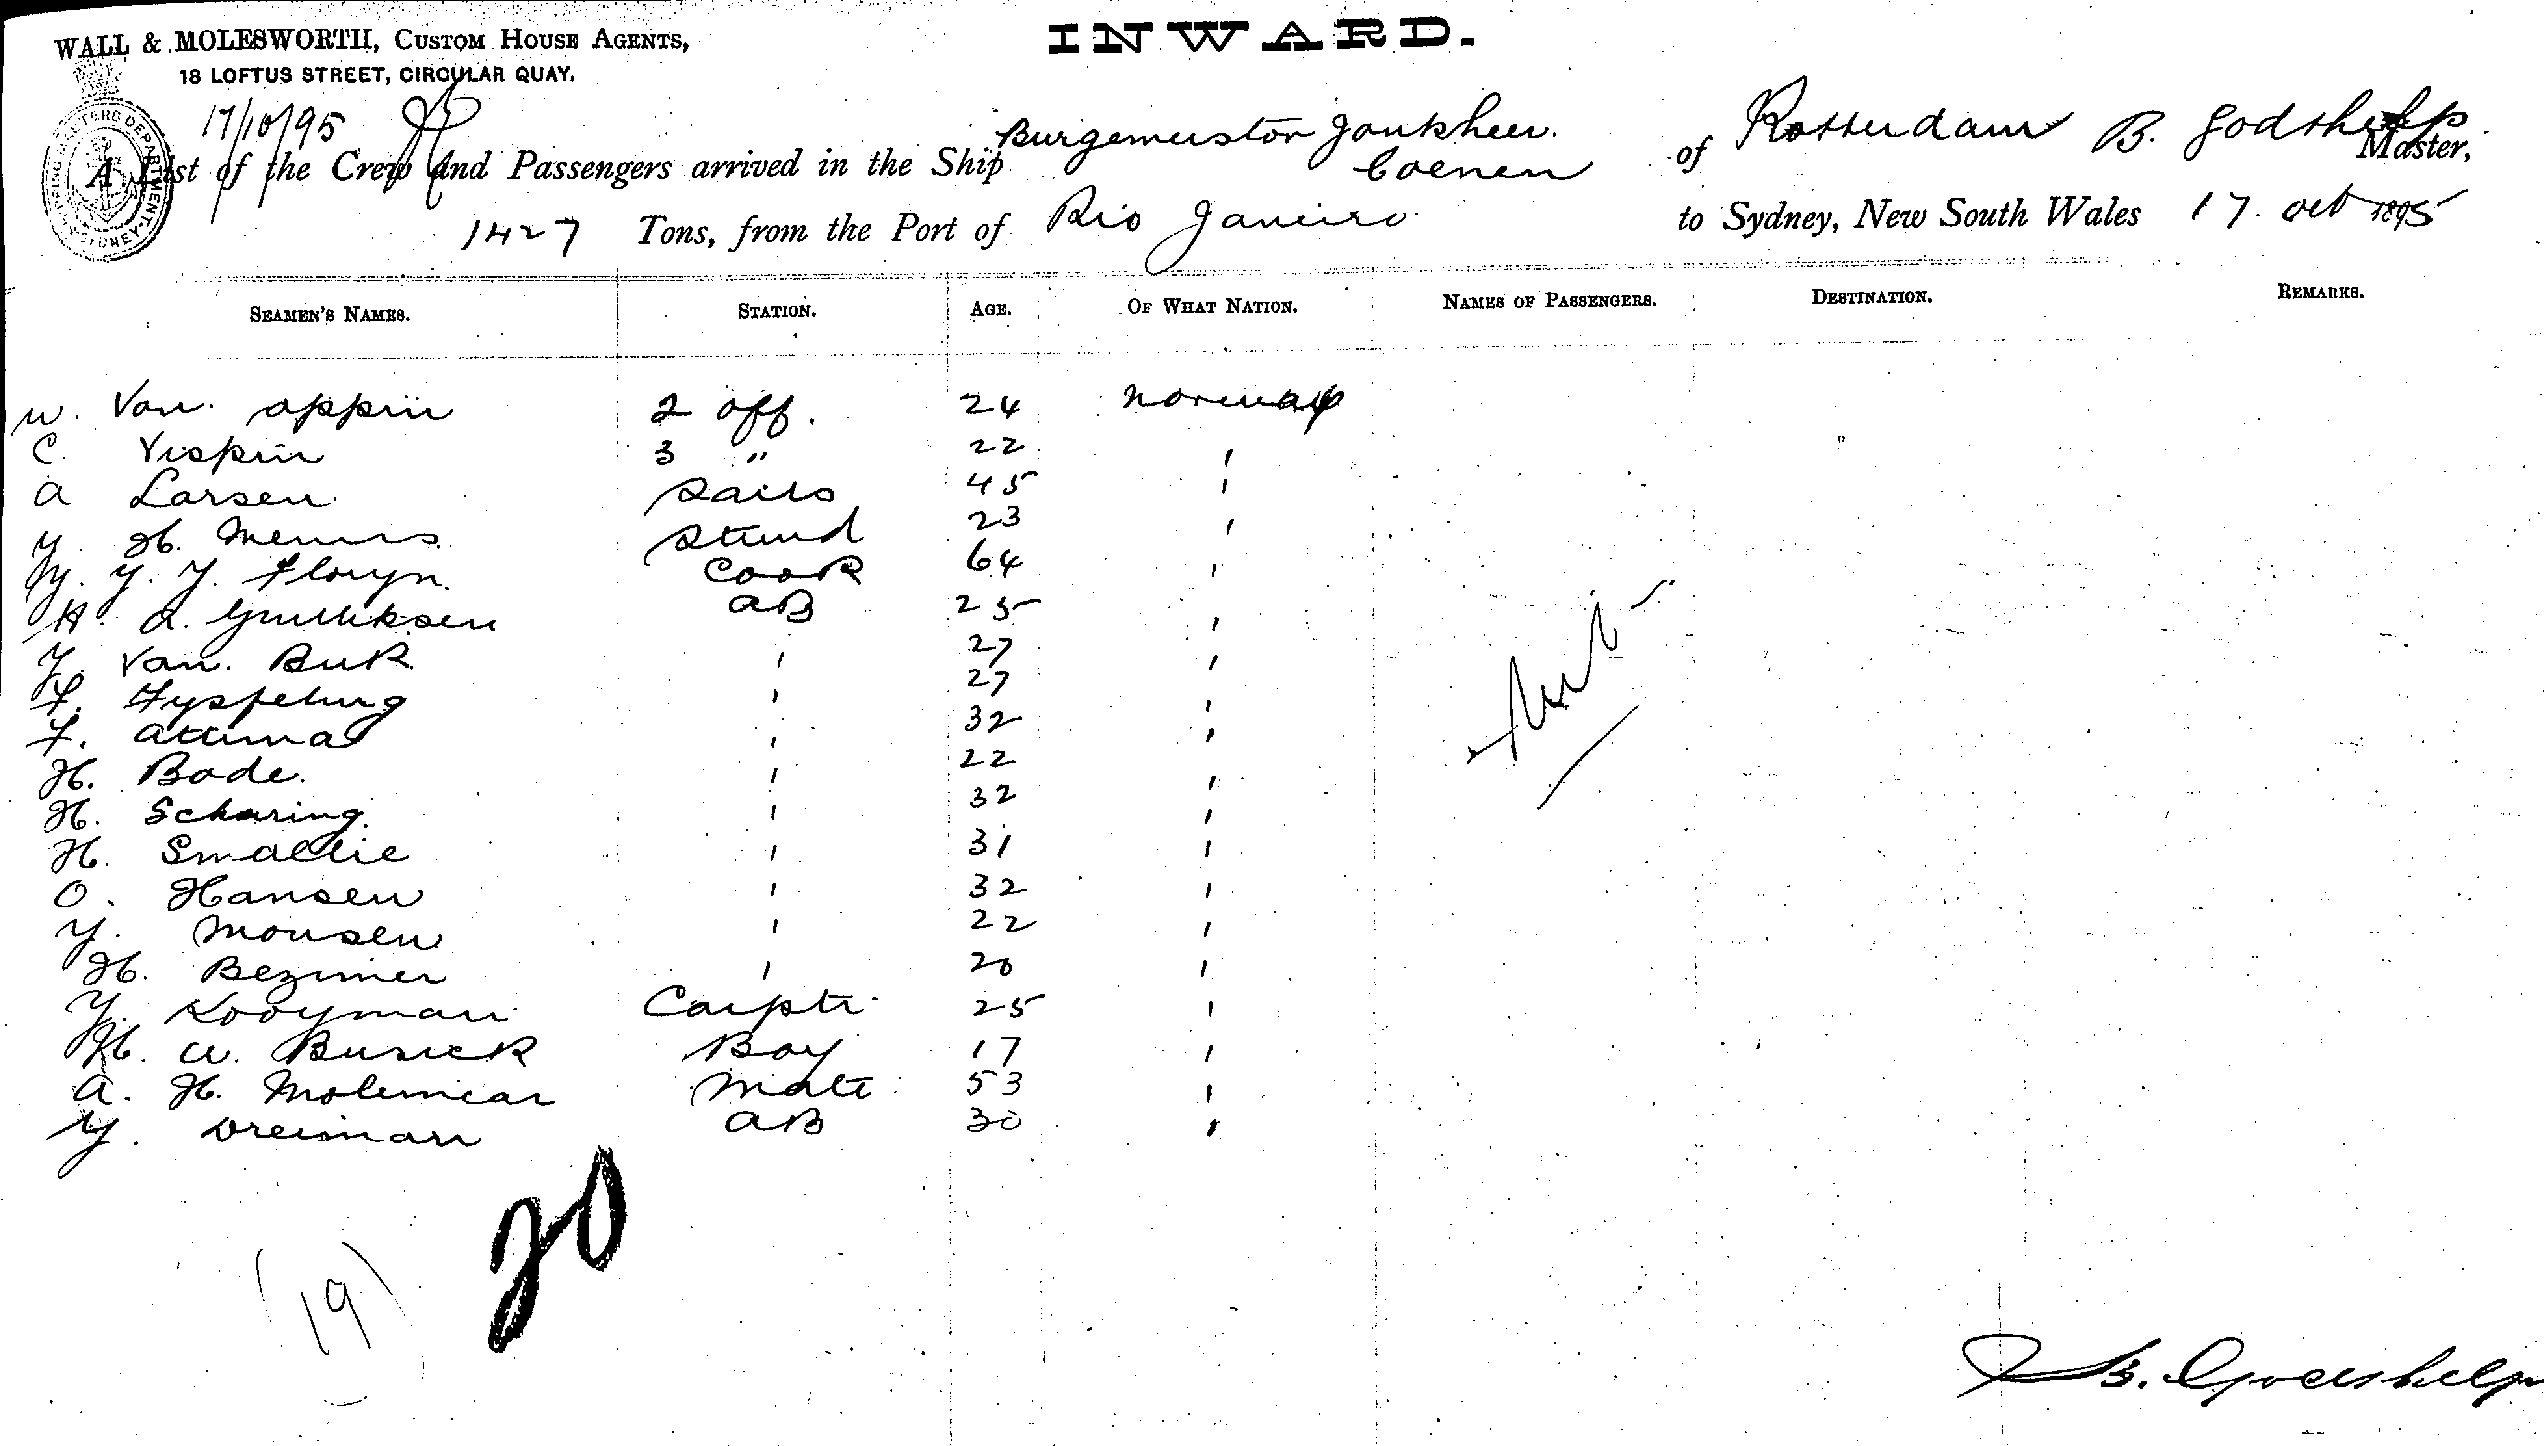 INWARD.
WALL & MOLESWORTH, CUSTOM HOUSE AGENTS,
18 LOFTUS STREET, CIRCULAR QUAY.
17/10/95
A List of the Crew and Passengers arrived in the Ship Burgemeester Jonkheer Coenen of Rotterdam B. Godshelp Master,
1427 Tons, from the Port of Rio Janeiro to Sydney, New South Wales 17. Oct 1895
SEAMEN'S NAMES. STATION. AGE. OF WHAT NATION. NAMES OF PASSENGERS. DESTINATION. REMARKS.
W. Van. Oppin 2 off. 24 Norway
C. Vispin 3 " 22 '
A Larsen Sails 45 '
Y. H. 23 '
Y. Y. Y. Floryn Cook 64 '
H. A. AB 25 '
Y. Van. Buk ' 27 '
F. ' 27 '
F. Attema ' 32 '
H. Bode. ' 22 '
H. Scharing. ' 32 '
H. Smallie ' 31 '
O. Hansen ' 32 '
Y. Monsen ' 22 '
H. Bezimer ' 20 '
Y. Kooyman Carptr 25 '
H. W. Busick Boy 17 '
A. H. Molenicar Mate 53 '
Y. Dreisman AB 30 '
20
(19)
B. Godshelp